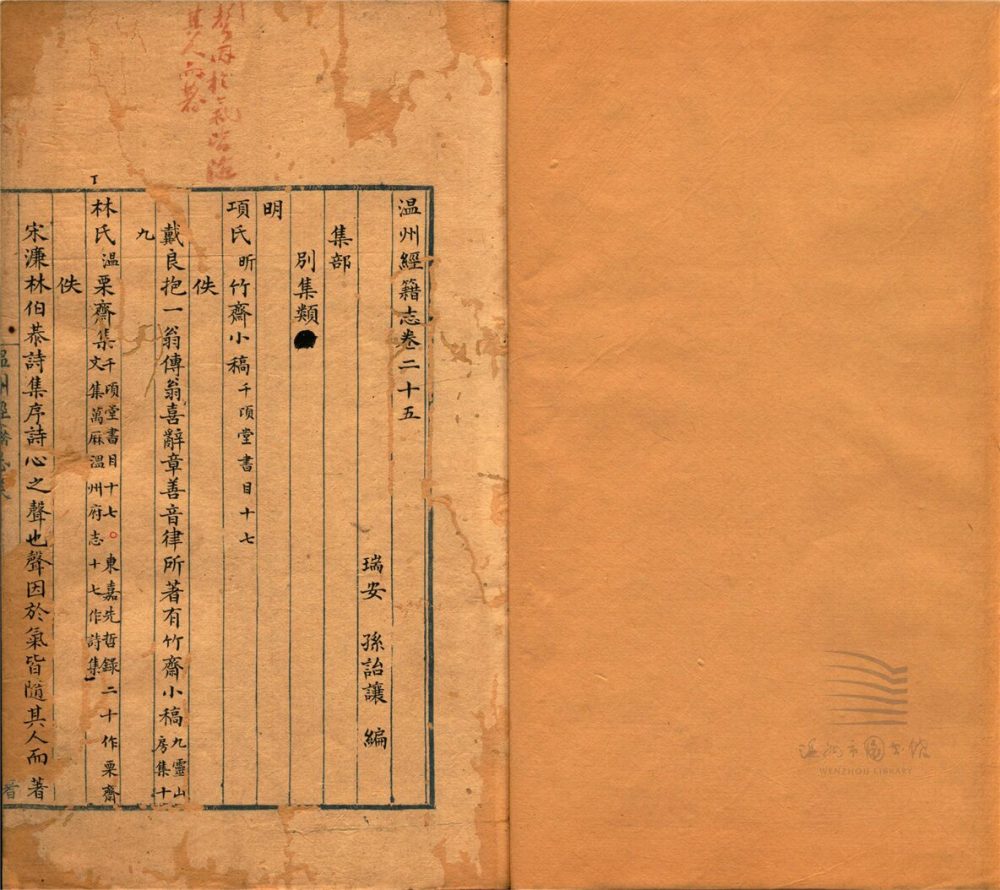 温州經籍志卷二十五
瑞安　孫詒讓　編
集部
別集類
明
項氏昕竹齋小稿千頃堂書目十七
佚
戴良抱一翁傳翁喜辭章善音律所著有竹齋小稿九靈山房集十
九
林氏温栗齋集千頃堂書目十七○東嘉先哲錄二十作栗齋文集萬厤溫州府志十七作詩集
佚
宋濂林伯恭詩集序詩心之聲也聲因於氣皆隨其人而著
其人而著
温州市图书馆
WENZHOU LIBRARY